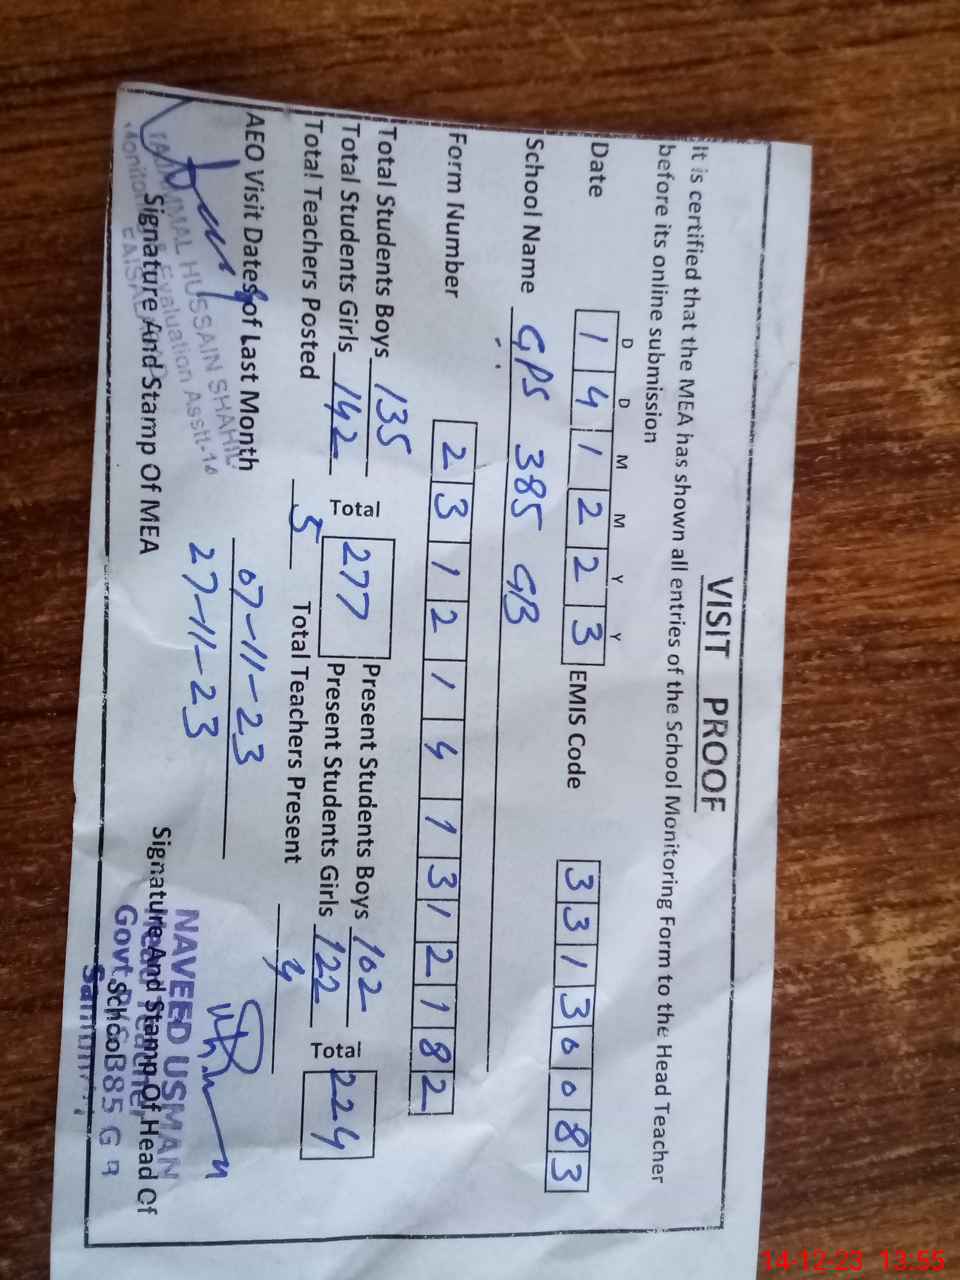 VISIT PROOF
It is certified that the MEA has shown all entries of the School Monitoring Form to the Head Teacher
before its online submission
D D M M Y Y
Date 1 4 1 2 2 3 EMIS Code 3 3 1 3 0 0 8 3
School Name GPS 385 GB
Form Number 2 3 1 2 1 4 1 1 3 1 2 1 8 2
Total Students Boys 135 Total 277 Present Students Boys 102 Total 224
Total Students Girls 142 Present Students Girls 122
Total Teachers Posted 5 Total Teachers Present
AEO Visit Dates of Last Month 07-11-23
27-11-23
TAJAMMAL HUSSAIN SHAHID
Monitoring & Evaluation Asstt-14
Signature And Stamp Of MEA
NAVEED USMAN
Head Teacher
Signature And Stamp Of Head Of
School
Govt. P/S 385 G B
14-12-23 13:55